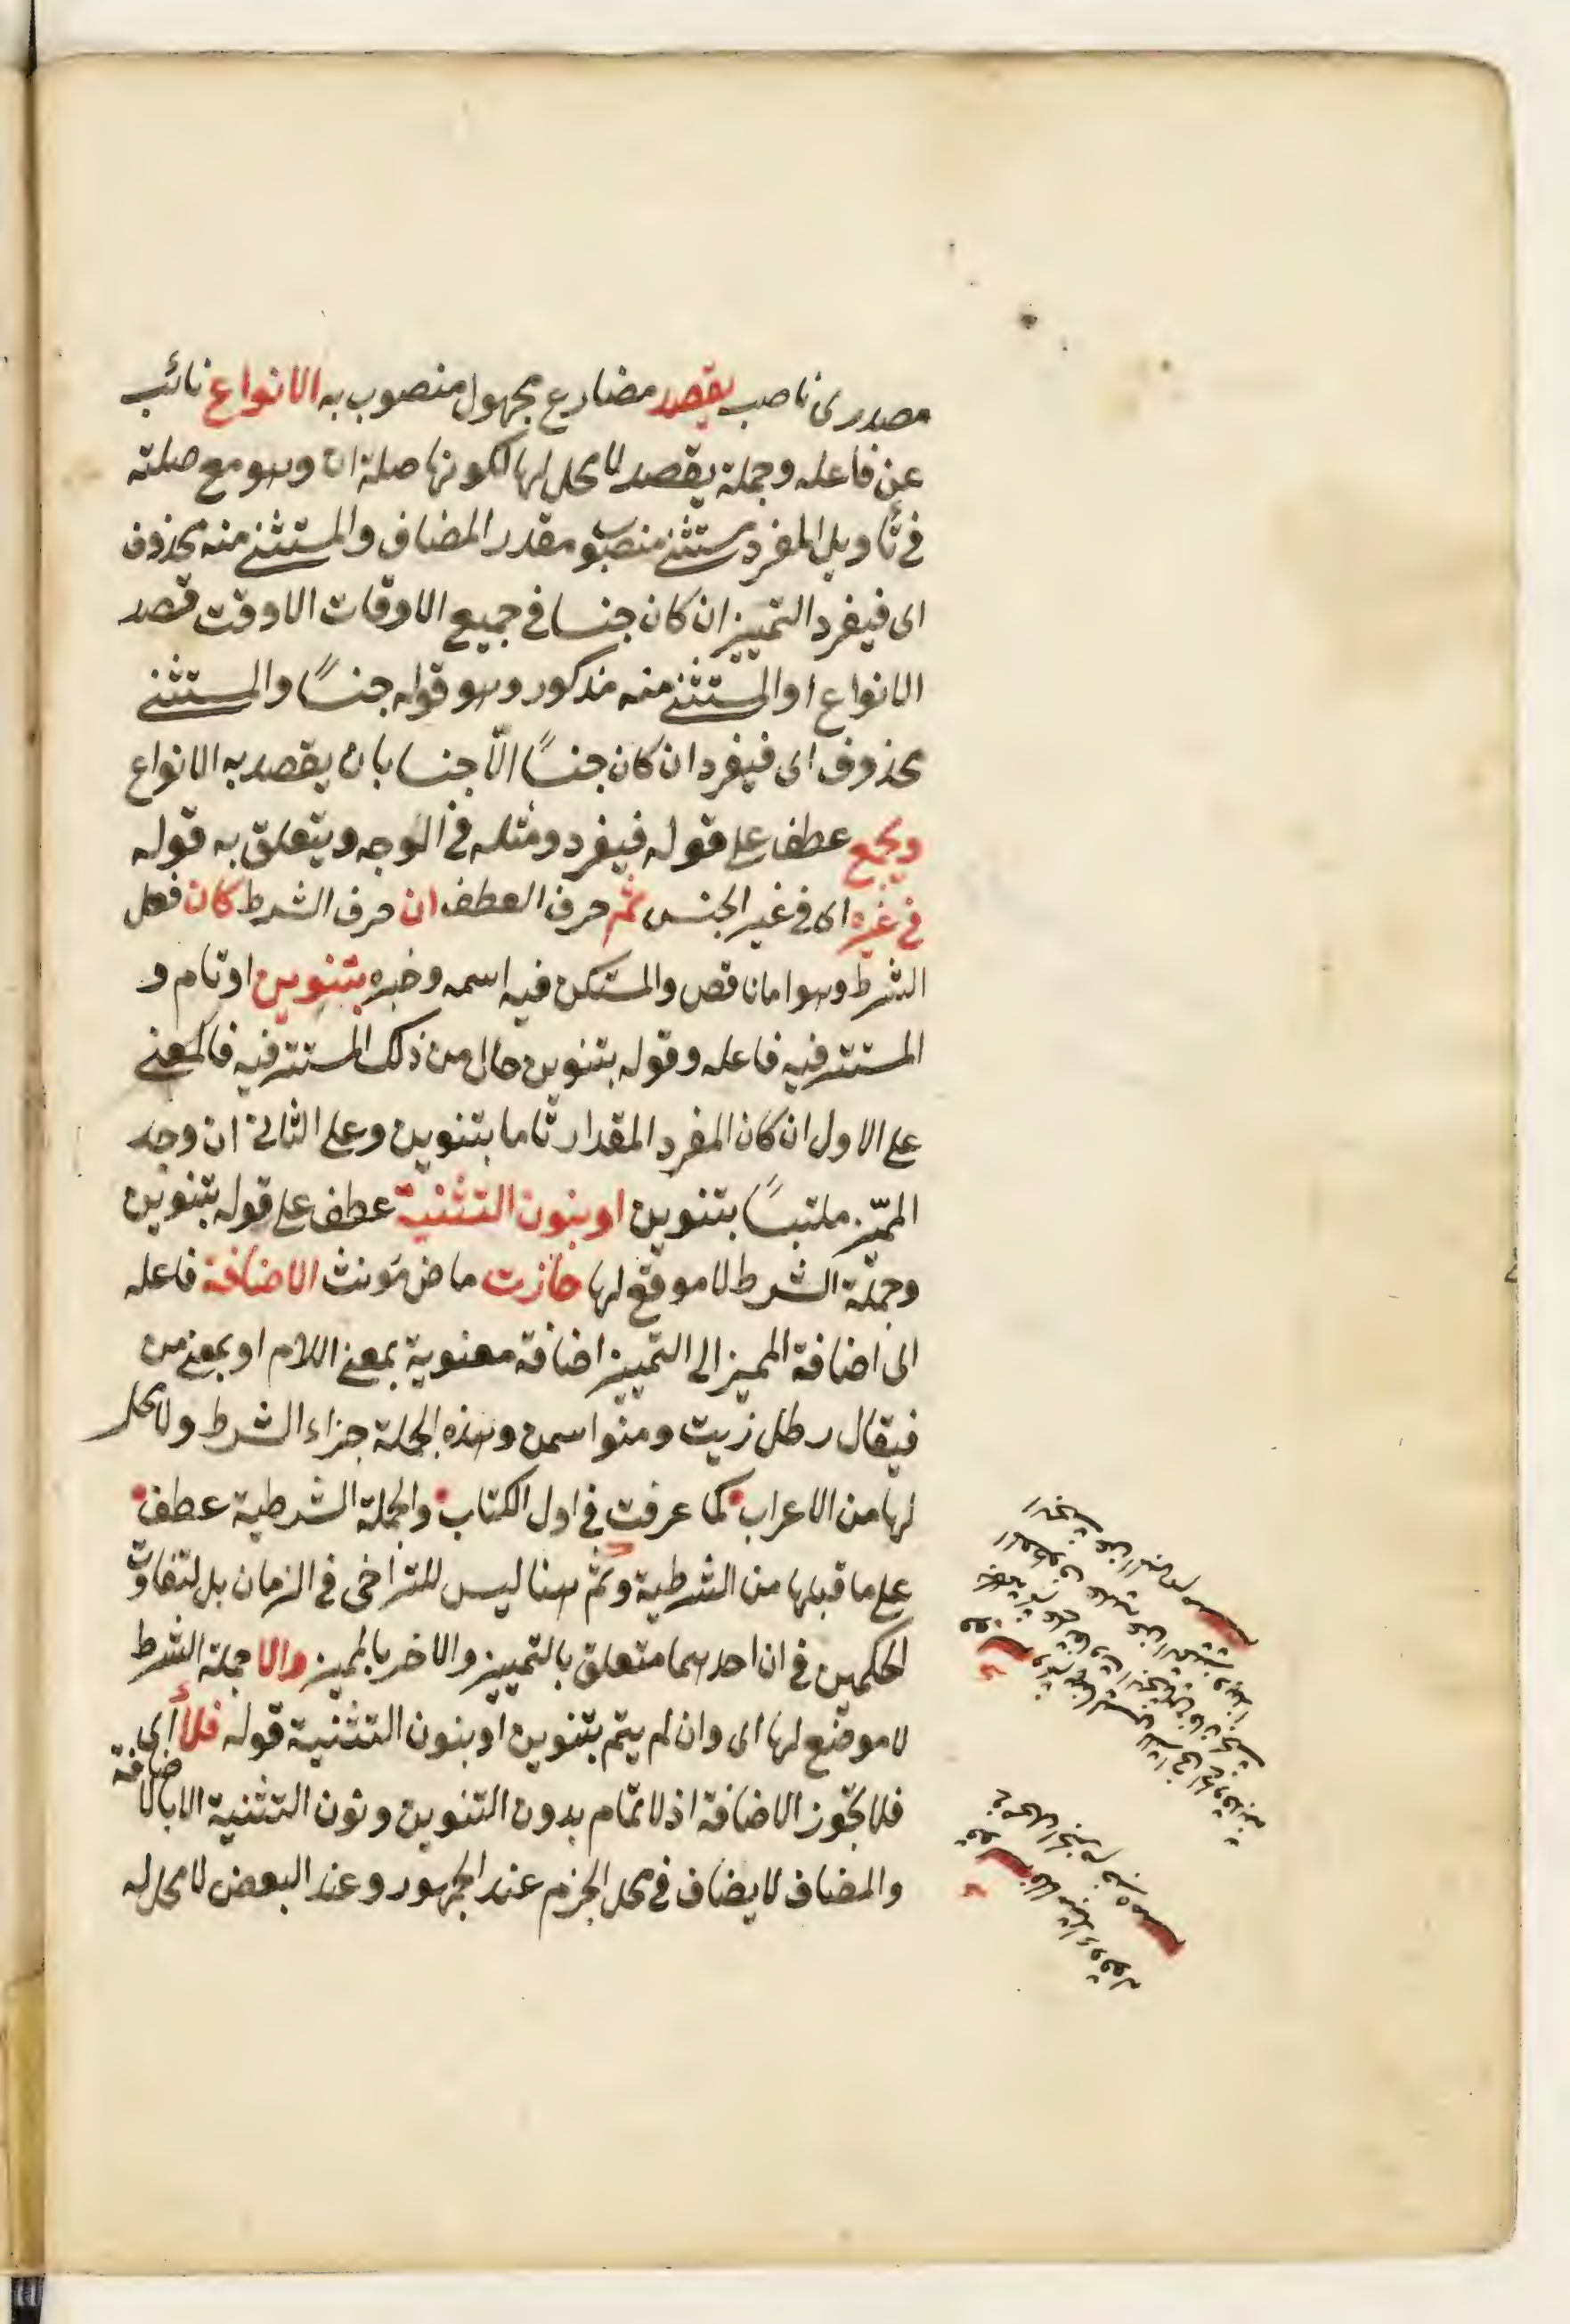 مصدرى ناصب يقصد مضارع مجهول منصوب به الانواع نائب
عن فاعله وجملة يقصد لا محل لها لكونها صلة ان وهو مع صلته
فى تأويل المفرد مستثنى منصوب مقدر المضاف والمستثنى منه محذوف
اى فيفرد التمييز ان كان جنسا فى جميع الاوقات الا وقت قصد
الانواع او المستثنى منه مذكور وهو قوله جنسًا والمستثنى
محذوف اى فيفرد ان كان جنسًا الّا جنسا بان يقصد به الانواع
ويجمع عطف على قوله فيفرد ومثله فى الوجه ويتعلق به قوله
فى غيره اى فى غير الجنس ثم حرف العطف ان حرف الشرط كان فعل
الشرط وهو اما ناقص والمستكن فيه اسمه وخبره بتنوين او تام و
المستتر فيه فاعله وقوله بتنوين حال من ذلك المستتر فيه فالمعنى
على الاول ان كان المفرد المقدار تاما بتنوين وعلى الثانى ان وجد
المميّز ملتبسًا بتنوين او بنون التثنية عطف على قوله بتنوين
وجملة الشرط لا موقع لها جازت ماض مؤنث الاضافة فاعله
اى اضافة المميز الى التمييز اضافة معنوية بمعنى اللام او بمعنى من
فيقال رطل زيت ومنوا سمن وهذه الجملة جزاء الشرط ولا محل
لها من الاعراب كما عرفت فى اول الكتاب والجملة الشرطية عطف
على ما قبلها من الشرطية وثمّ هنا ليس للتراخى فى الزمان بل لتفاوت
الحكمين فى ان احدهما متعلق بالتمييز والاخر بالمميز والا جملة الشرط
لا موضع لها اى وان لم يتم بتنوين او بنون التثنية قوله فلا أى
فلا تجوز الاضافة اذ لا تمام بدون التنوين ونون التثنية الا بالاضافة
والمضاف لا يضاف فى محل الجزم عند الجمهور وعند البعض لا محل له